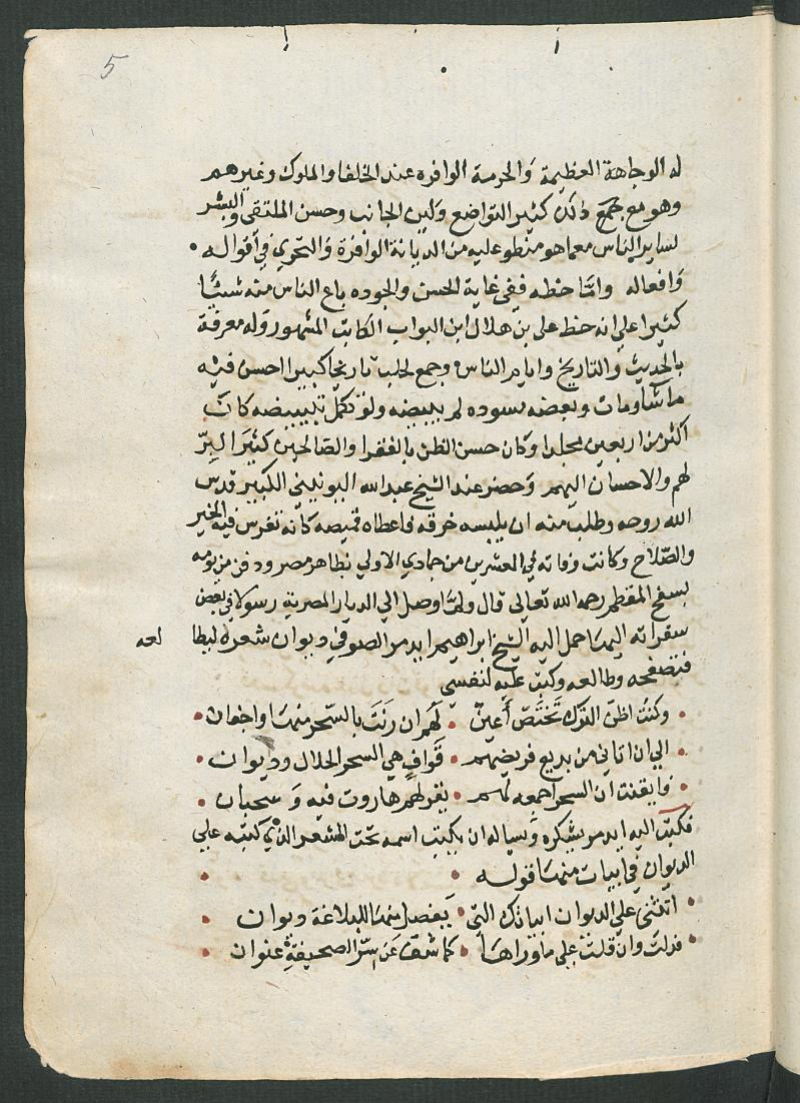 5
له الوجاهة العظيمة والحرمة الوافره عند الخلفا والملوك وغيرهم
وهو مع جميع ذلك كثير التواضع ولين الجانب وحسن الملتقى والبشر
لساير الناس مع ما هو منطو عليه من الديانة الوافرة والتحري في أقواله
وافعاله واما خطه ففي غاية الحسن والجوده باع الناس منه شيئا
كثيرا على انه خط علي بن هلال ابن البواب الكاتب المشهور وله معرفة
بالحديث والتاريخ وايام الناس وجمع لحلب تاريخا كبيرا احسن فيه
ما شا ومات وبعضه مسوده لم يبيضه ولو تكمل تبييضه كان
اكثر من اربعين مجلدا وكان حسن الظن بالفقرا والصالحين كثير البر
لهم والاحسان اليهم وحضر عند الشيخ عبد الله اليونيني الكبير قدس
الله روحه وطلب منه ان يلبسه خرقه فاعطاه قميصه كانه تفرس فيه الخير
والصلاح وكانت وفاته في العشرين من جمادي الاولي بظاهر مصر ودفن من يومه
بسفح المقطم رحمه الله تعالى قال ولما وصل الي الديار المصرية رسولا في بعض
سفراته اليها حمل اليه الشيخ ابراهيم ايدمر الصوفي ديوان شعره ليطا
لعه
فتصفحه وطالعه وكتب عليه لنفسي
وكنت اظن الترك تختص أعين • لهم ان رنت بالسحر منها واجفان
الي ان اتاني من بديع قريضهم • قواف هي السحر الحلال وديوان
فايقنت ان السحر اجمعه لهم • يقر لهم هاروت فيه وسحبان
فكتب اليه ايدمر يشكره ويساله ان يكتب اسمه تحت الشعر الذي كتبه علي
الديوان في ابيات منها قوله
اتتني علي الديوان ابياتك التي • يفصل منها للبلاغة ديوان
فدلت وان قلت علي ما وراها • كما شف عن سر الصحيفة عنوان